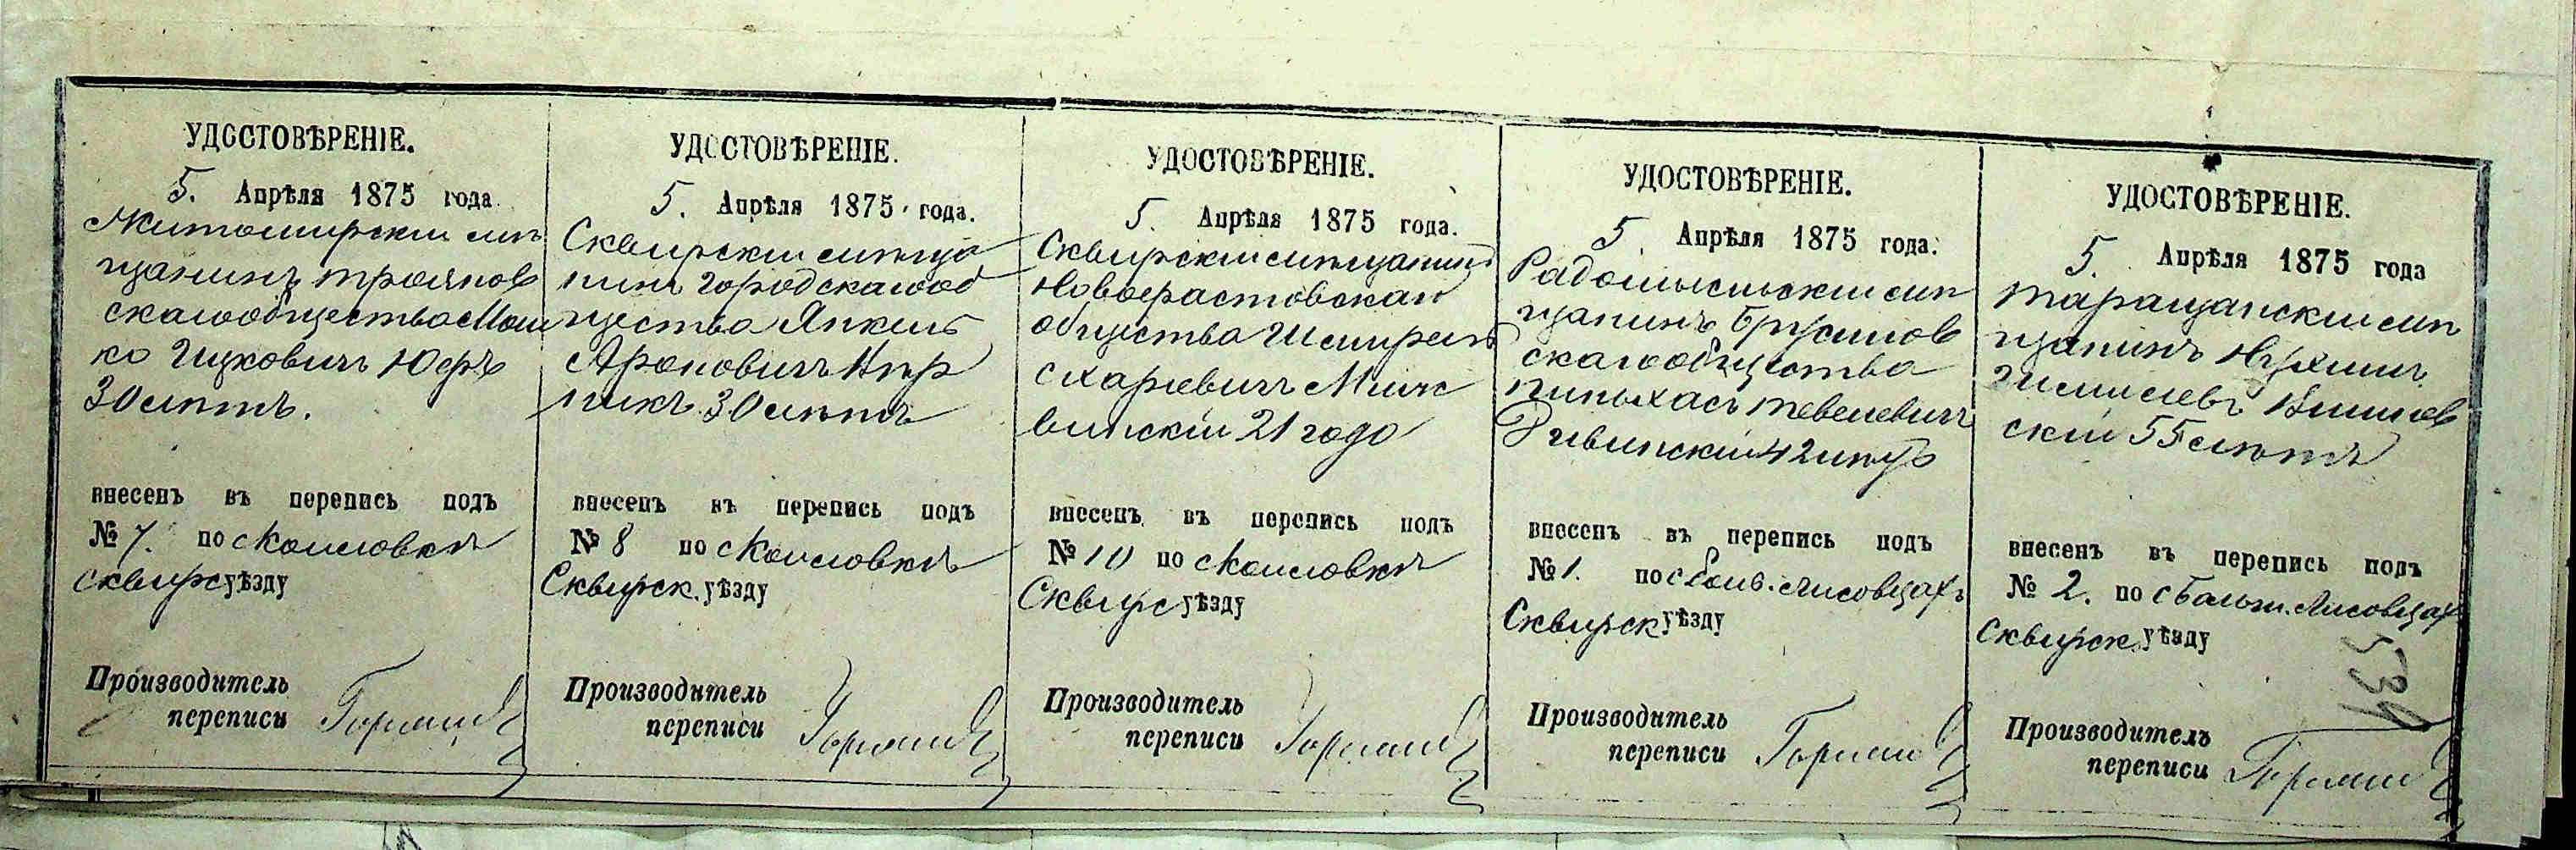 УДОСТОВѢРЕНІЕ.
5. Апрѣля 1875 года.
Житомирскій мѣ
щанинъ Трояновъ
скаго общества Мош
ко Ицковичъ Юфръ
30 лѣтъ.
внесенъ въ перепись подъ
№ 7. по с Каиловкѣ
Сквирс уѣзду
Производитель
переписи
УДОСТОВѢРЕНІЕ.
5. Апрѣля 1875 года.
Сквирскій мѣща
нинъ городскаго об
щества Янкель
Ароновичъ
никъ 30 лѣтъ
внесенъ въ перепись подъ
№ 8 по с Каиловкѣ
Сквирск. уѣзду
Производитель
переписи
УДОСТОВѢРЕНІЕ.
5. Апрѣля 1875 года.
Сквирскій мѣщанинъ
Новофастовскаго
общества
Минь
винскій 21 годо
внесенъ въ перепись подъ
№ 10 по с Каиловкѣ
Сквирс уѣзду
Производитель
переписи
УДОСТОВѢРЕНІЕ.
5. Апрѣля 1875 года.
Радомысльскій мѣ
щанинъ Брусилов
скаго общества
Пинхасъ Тевелевичъ
42 лѣтъ
внесенъ въ перепись подъ
№ 1. по с Больш. Лисовцахъ
Сквирск уѣзду
Производитель
переписи
УДОСТОВѢРЕНІЕ.
5. Апрѣля 1875 года
Таращанскій мѣ
щанинъ Нухимъ
скій 55 лѣтъ
внесенъ въ перепись подъ
№ 2. по с Больш. Лисовцах
Сквирск. уѣзду
Производитель
переписи